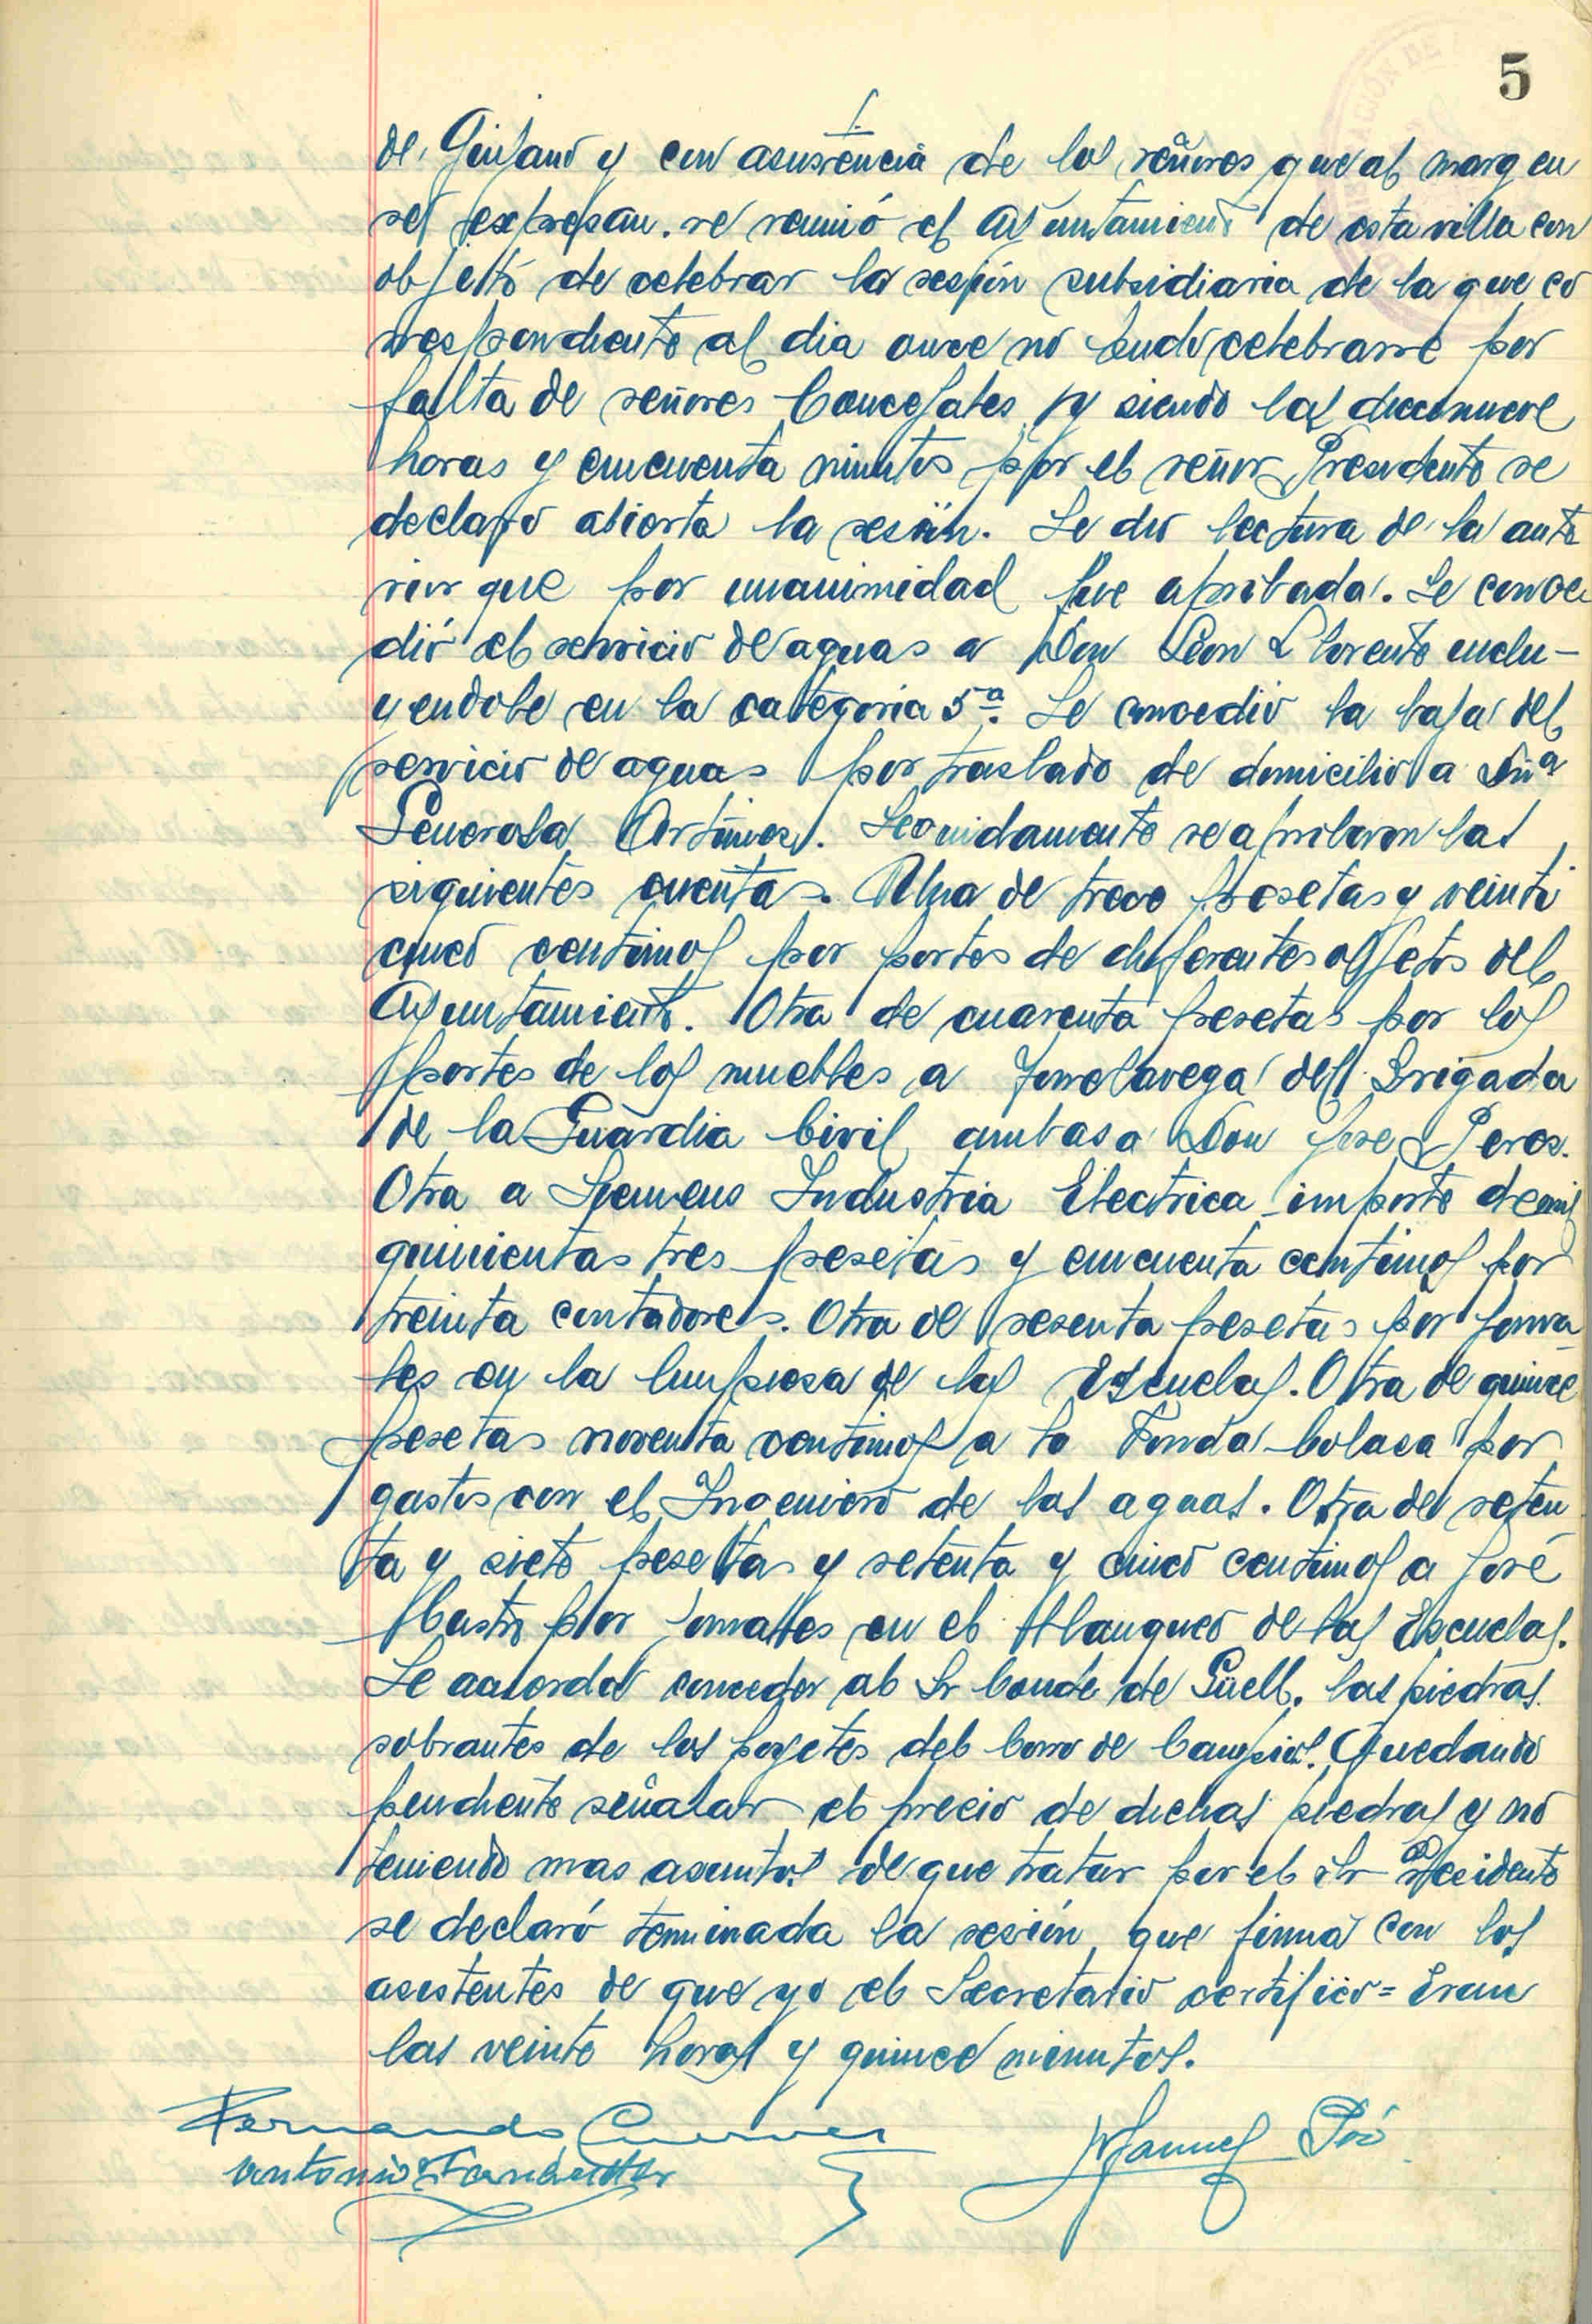 5
de Quijano y con asistencia de los señores que al margen
se expresan. se reunió el Ayuntamiento de esta villa con
objeto de celebrar la sesión subsidiaria de la que co
rrespondiente al dia once no pudo celebrarse por
falta de señores Concejales y siendo las diecinueve
horas y cincuenta minutos por el señor Presidente se
declaro abierta la sesión. Se dio lectura de la ante
rior que por unanimidad fue aprobada. Se conce
dió el servicio de aguas a Don Leon Llorente inclu-
yendole en la categoria 5ª. Se concedio la baja del
servicio de aguas por traslado de domicilio a Dñª
Generosa. Seguidamente se aprobaron las
siguientes cuentas. Una de trece pesetas y veinti
cinco centimos por portes de diferentes objetos del
Ayuntamiento. Otra de cuarenta pesetas por los
portes de los muebles a Torrelavega del Brigada
de la Guardia Civil ambas a Don Jose Perez.
Otra a Siemens Industria Electrica importe de mil
quinientas tres pesetas y cincuenta centimos por
treinta contadores. Otra de sesenta pesetas por jorna
les en la limpieza de las Escuelas. Otra de quince
pesetas noventa centimos a la Fonda Colasa por
gastos con el Ingeniero de las aguas. Otra de seten
ta y siete pesetas y setenta y cinco centimos a José
Castro por jornales en el blanqueo de las Escuelas.
Se acordo conceder al Sr Conde de Güell. las piedras
sobrantes de los poyetes del Corro de Campios. Quedando
pendiente señalar el precio de dichas piedras y no
teniendo mas asuntos de que tratar por el Sr Presidente
se declaró terminada la sesión, que firma con los
asistentes de que yo el Secretario certifico = Eran
las veinte horas y quince minutos.
Fernando Cuevas
Manuel Póo
Antonio Fernandez